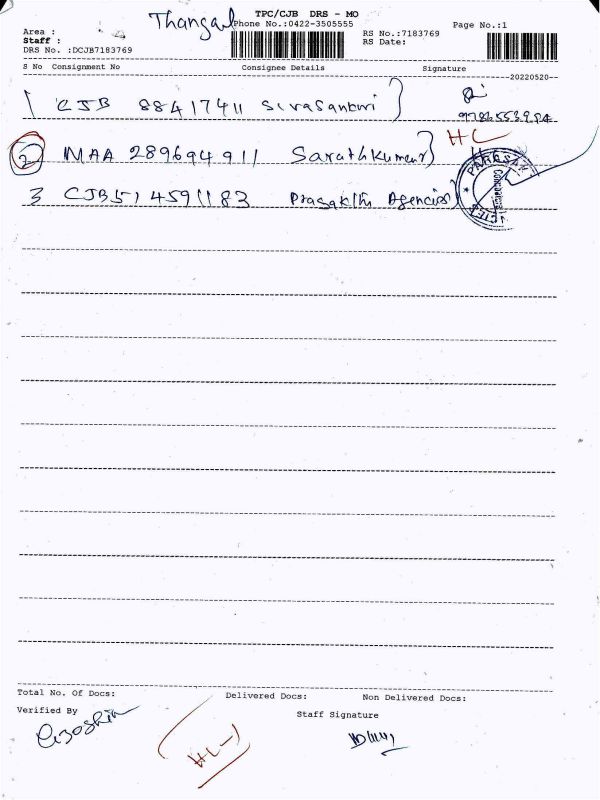 Thangavel
TPC/CJB DRS - MO
Phone No.:0422-3505555
Page No.:1
Area :
Staff :
DRS No. :DCJB7183769
RS No.:7183769
RS Date:
S No Consignment No Consignee Details Signature
20220520
1 CJB 88417411 Sivasankari
HC
2 MAA 289694911 Sarathkumar
3 CJB514591183 Prasakthi Agencies
Total No. Of Docs: Delivered Docs: Non Delivered Docs:
Verified By Staff Signature
HC-1